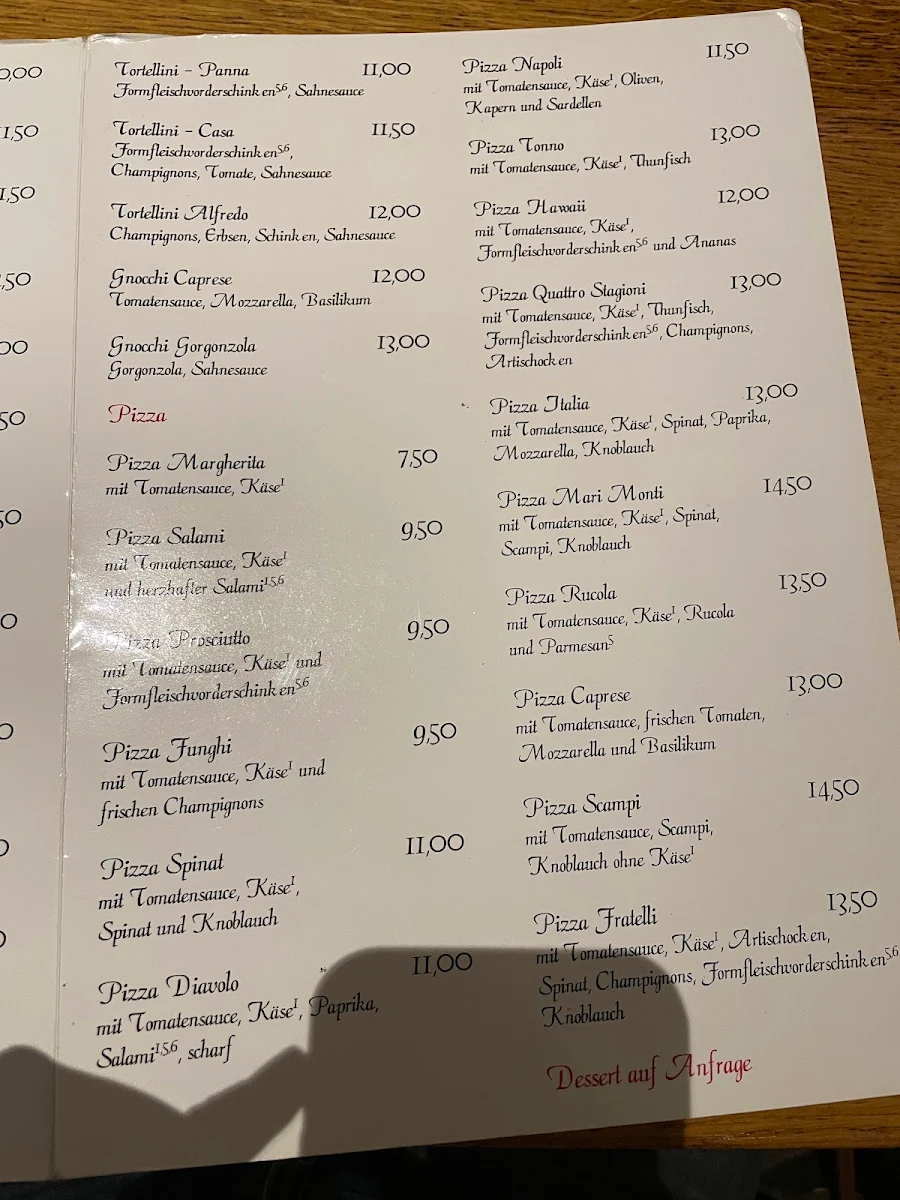 0,00
1,50
1,50
,50
00
50
50
0
0
0
0
Tortellini - Panna 11,00
Formfleischvorderschinken5,6, Sahnesauce
Tortellini - Casa 11,50
Formfleischvorderschinken5,6,
Champignons, Tomate, Sahnesauce
Tortellini Alfredo 12,00
Champignons, Erbsen, Schinken, Sahnesauce
Gnocchi Caprese 12,00
Tomatensauce, Mozzarella, Basilikum
Gnocchi Gorgonzola 13,00
Gorgonzola, Sahnesauce
Pizza
Pizza Margherita 7,50
mit Tomatensauce, Käse1
Pizza Salami 9,50
mit Tomatensauce, Käse1
und herzhafter Salami1,5,6
Pizza Prosciutto 9,50
mit Tomatensauce, Käse1 und
Formfleischvorderschinken5,6
Pizza Funghi 9,50
mit Tomatensauce, Käse1 und
frischen Champignons
Pizza Spinat 11,00
mit Tomatensauce, Käse1,
Spinat und Knoblauch
Pizza Diavolo 11,00
mit Tomatensauce, Käse1, Paprika,
Salami1,5,6, scharf
Pizza Napoli 11,50
mit Tomatensauce, Käse1, Oliven,
Kapern und Sardellen
Pizza Tonno 13,00
mit Tomatensauce, Käse1, Thunfisch
Pizza Hawaii 12,00
mit Tomatensauce, Käse1,
Formfleischvorderschinken5,6 und Ananas
Pizza Quattro Stagioni 13,00
mit Tomatensauce, Käse1, Thunfisch,
Formfleischvorderschinken5,6, Champignons,
Artischocken
Pizza Italia 13,00
mit Tomatensauce, Käse1, Spinat, Paprika,
Mozzarella, Knoblauch
Pizza Mari Monti 14,50
mit Tomatensauce, Käse1, Spinat,
Scampi, Knoblauch
Pizza Rucola 13,50
mit Tomatensauce, Käse1, Rucola
und Parmesan5
Pizza Caprese 13,00
mit Tomatensauce, frischen Tomaten,
Mozzarella und Basilikum
Pizza Scampi 14,50
mit Tomatensauce, Scampi,
Knoblauch ohne Käse1
Pizza Fratelli 13,50
mit Tomatensauce, Käse1, Artischocken,
Spinat, Champignons, Formfleischvorderschinken5,6
Knoblauch
Dessert auf Anfrage